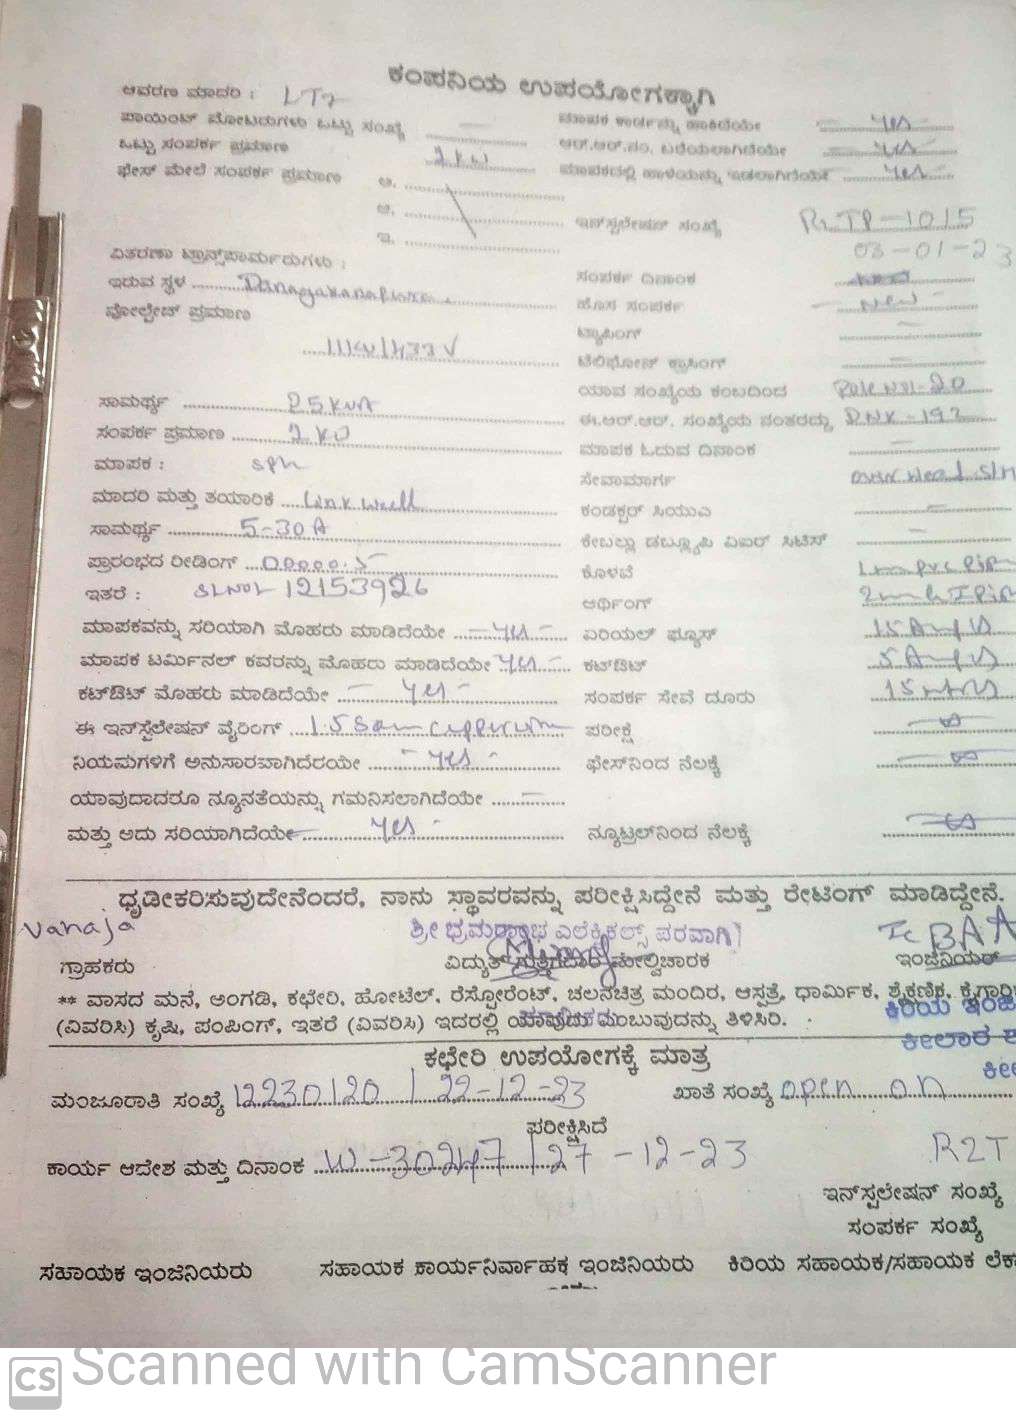 ಕಂಪನಿಯ ಉಪಯೋಗಕ್ಕಾಗಿ
ಆವರಣ ಮಾದರಿ : LT2
ಪಾಯಿಂಟ್ ಮೋಟರುಗಳು ಒಟ್ಟು ಸಂಖ್ಯೆ ಮಾಪಕ ಕಾರ್ಡನ್ನು ಹಾಕಿದೆಯೇ Yes
ಒಟ್ಟು ಸಂಪರ್ಕ ಪ್ರಮಾಣ 2 KW ಆರ್.ಆರ್.ನಂ. ಬರೆಯಲಾಗಿದೆಯೇ Yes
ಫೇಸ್ ಮೇಲೆ ಸಂಪರ್ಕ ಪ್ರಮಾಣ ಅ. ಮಾಪಕದಲ್ಲಿ ಹಾಳೆಯನ್ನು ಇಡಲಾಗಿದೆಯೇ Yes
ಆ. ಇನ್‌ಸ್ಟಲೇಷನ್ ಸಂಖ್ಯೆ -1015
ಇ. 03-01-23
ವಿತರಣಾ ಟ್ರಾನ್ಸ್‌ಫಾರ್ಮರುಗಳು :
ಇರುವ ಸ್ಥಳ ಸಂಪರ್ಕ ದಿನಾಂಕ
ವೋಲ್ಟೇಜ್ ಪ್ರಮಾಣ ಹೊಸ ಸಂಪರ್ಕ New
11KV/433 V ಟ್ಯಾಪಿಂಗ್
ಟೆಲಿಫೋನ್ ಕ್ರಾಸಿಂಗ್
ಸಾಮರ್ಥ್ಯ 25 KVA ಯಾವ ಸಂಖ್ಯೆಯ ಕಂಬದಿಂದ Pole No:-20
ಸಂಪರ್ಕ ಪ್ರಮಾಣ ಈ.ಆರ್.ಆರ್. ಸಂಖ್ಯೆಯ ನಂತರದ್ದು DNK-193
ಮಾಪಕ : sph ಮಾಪಕ ಓದುವ ದಿನಾಂಕ
ಮಾದರಿ ಮತ್ತು ತಯಾರಿಕೆ Link well ಸೇವಾಮಾರ್ಗ over Head
ಸಾಮರ್ಥ್ಯ 5-30A ಕಂಡಕ್ಟರ್ ಸಿಯುಎ
ಪ್ರಾರಂಭದ ರೀಡಿಂಗ್ 00000.5 ಕೇಬಲ್ಲು ಡಬ್ಲ್ಯೂಪಿ ಏಐರ್ ಸಿಟಿಸ್
ಇತರೆ : SLNO:- 12153926 ಕೊಳವೆ
ಆರ್ಥಿಂಗ್
ಮಾಪಕವನ್ನು ಸರಿಯಾಗಿ ಮೊಹರು ಮಾಡಿದೆಯೇ Yes ಏರಿಯಲ್ ಫ್ಯೂಸ್ 15 Amps
ಮಾಪಕ ಟರ್ಮಿನಲ್ ಕವರನ್ನು ಮೊಹರು ಮಾಡಿದೆಯೇ Yes ಕಟ್ಔಟ್ 5 Amps
ಕಟ್ಔಟ್ ಮೊಹರು ಮಾಡಿದೆಯೇ Yes ಸಂಪರ್ಕ ಸೇವೆ ದೂರು 15 mtrs
ಈ ಇನ್‌ಸ್ಟಲೇಷನ್ ವೈರಿಂಗ್ ಪರೀಕ್ಷೆ
ನಿಯಮಗಳಿಗೆ ಅನುಸಾರವಾಗಿದೆರಯೇ Yes ಫೇಸ್‌ನಿಂದ ನೆಲಕ್ಕೆ
ಯಾವುದಾದರೂ ನ್ಯೂನತೆಯನ್ನು ಗಮನಿಸಲಾಗಿದೆಯೇ
ಮತ್ತು ಅದು ಸರಿಯಾಗಿದೆಯೇ Yes ನ್ಯೂಟ್ರಲ್‌ನಿಂದ ನೆಲಕ್ಕೆ
ಧೃಡೀಕರಿಸುವುದೇನೆಂದರೆ, ನಾನು ಸ್ಥಾವರವನ್ನು ಪರೀಕ್ಷಿಸಿದ್ದೇನೆ ಮತ್ತು ರೇಟಿಂಗ್ ಮಾಡಿದ್ದೇನೆ.
Vanaja ಶ್ರೀ ಭ್ರಮರಾಂಭ ಎಲೆಕ್ಟ್ರಿಕಲ್ಸ್ ಪರವಾಗಿ
ಗ್ರಾಹಕರು ವಿದ್ಯುತ್ ಗುತ್ತಿಗೆದಾರ ಮೇಲ್ವಿಚಾರಕ ಇಂಜಿನಿಯರ್
** ವಾಸದ ಮನೆ, ಅಂಗಡಿ, ಕಛೇರಿ, ಹೋಟೆಲ್, ರೆಸ್ಟೋರೆಂಟ್, ಚಲನಚಿತ್ರ ಮಂದಿರ, ಆಸ್ಪತ್ರೆ, ಧಾರ್ಮಿಕ, ಶೈಕ್ಷಣಿಕ, ಕೈಗಾರಿ
(ವಿವರಿಸಿ) ಕೃಷಿ, ಪಂಪಿಂಗ್, ಇತರೆ (ವಿವರಿಸಿ) ಇದರಲ್ಲಿ ಯಾವುದು ಎಂಬುವುದನ್ನು ತಿಳಿಸಿರಿ. ಕಿರಿಯ ಇಂಜಿ
ಕೀಲಾರ ಶ
ಕಛೇರಿ ಉಪಯೋಗಕ್ಕೆ ಮಾತ್ರ ಕೀಲ
ಮಂಜೂರಾತಿ ಸಂಖ್ಯೆ 12230120 / 22-12-23 ಖಾತೆ ಸಂಖ್ಯೆ open on
ಪರೀಕ್ಷಿಸಿದೆ
ಕಾರ್ಯ ಆದೇಶ ಮತ್ತು ದಿನಾಂಕ W-30247 / 27-12-23 R2T
ಇನ್‌ಸ್ಟಲೇಷನ್ ಸಂಖ್ಯೆ
ಸಂಪರ್ಕ ಸಂಖ್ಯೆ
ಸಹಾಯಕ ಇಂಜಿನಿಯರು ಸಹಾಯಕ ಕಾರ್ಯನಿರ್ವಾಹಕ ಇಂಜಿನಿಯರು ಕಿರಿಯ ಸಹಾಯಕ/ಸಹಾಯಕ ಲೆಕ
CS Scanned with CamScanner